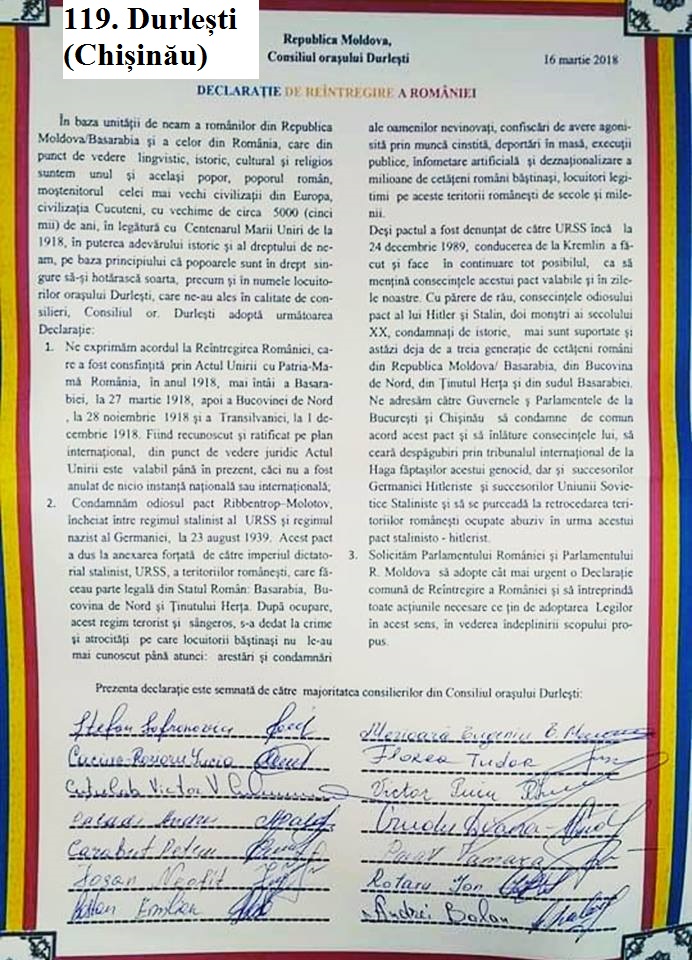 119. Durlești
(Chișinău)
Republica Moldova,
Consiliul orașului Durlești
16 martie 2018
DECLARAȚIE DE REÎNTREGIRE A ROMÂNIEI
În baza unității de neam a românilor din Republica
Moldova/Basarabia și a celor din România, care din
punct de vedere lingvistic, istoric, cultural și religios
suntem unul și același popor, poporul român,
moștenitorul celei mai vechi civilizații din Europa,
civilizația Cucuteni, cu vechime de circa 5000 (cinci
mii) de ani, în legătură cu Centenarul Marii Uniri de la
1918, în puterea adevărului istoric și al dreptului de ne-
am, pe baza principiului că popoarele sunt în drept sin-
gure să-și hotărască soarta, precum și în numele locuito-
rilor orașului Durlești, care ne-au ales în calitate de con-
silieri, Consiliul or. Durlești adoptă următoarea
Declarație:
1. Ne exprimăm acordul la Reîntregirea României, ca-
re a fost consfințită prin Actul Unirii cu Patria-Ma-
mă România, în anul 1918, mai întâi a Basara-
biei, la 27 martie 1918, apoi a Bucovinei de Nord
, la 28 noiembrie 1918 și a Transilvaniei, la 1 de-
cembrie 1918. Fiind recunoscut și ratificat pe plan
internațional, din punct de vedere juridic Actul
Unirii este valabil până în prezent, căci nu a fost
anulat de nicio instanță națională sau internațională;
2. Condamnăm odiosul pact Ribbentrop–Molotov,
încheiat între regimul stalinist al URSS și regimul
nazist al Germaniei, la 23 august 1939. Acest pact
a dus la anexarea forțată de către imperiul dictato-
rial stalinist, URSS, a teritoriilor românești, care fă-
ceau parte legală din Statul Român: Basarabia, Bu-
covina de Nord și Ținutului Herța. După ocupare,
acest regim terorist și sângeros, s-a dedat la crime
și atrocități pe care locuitorii băștinași nu le-au
mai cunoscut până atunci: arestări și condamnări
ale oamenilor nevinovați, confiscări de avere agoni-
sită prin muncă cinstită, deportări în masă, execuții
publice, înfometare artificială și deznaționalizare a
milioane de cetățeni români băștinași, locuitori legi-
timi pe aceste teritorii românești de secole și mile-
nii.
Deși pactul a fost denunțat de către URSS încă la
24 decembrie 1989, conducerea de la Kremlin a fă-
cut și face în continuare tot posibilul, ca să
mențină consecințele acestui pact valabile și în zile-
le noastre. Cu părere de rău, consecințele odiosului
pact al lui Hitler și Stalin, doi monștri ai secolului
XX, condamnați de istorie, mai sunt suportate și
astăzi deja de a treia generație de cetățeni români
din Republica Moldova/ Basarabia, din Bucovina
de Nord, din Ținutul Herța și din sudul Basarabiei.
Ne adresăm către Guvernele ș Parlamentele de la
București și Chișinău să condamne de comun
acord acest pact și să înlăture consecințele lui, să
ceară despăgubiri prin tribunalul internațional de la
Haga făptașilor acestui genocid, dar și succesorilor
Germaniei Hitleriste și succesorilor Uniunii Sovie-
tice Staliniste și să se purceadă la retrocedarea teri-
toriilor românești ocupate abuziv în urma acestui
pact stalinisto - hitlerist.
3. Solicităm Parlamentului României și Parlamentului
R. Moldova să adopte cât mai urgent o Declarație
comună de Reîntregire a României și să întreprindă
toate acțiunile necesare ce țin de adoptarea Legilor
în acest sens, în vederea îndeplinirii scopului pro-
pus.
Prezenta declarație este semnată de către majoritatea consilierilor din Consiliul orașului Durlești:
Ștefan Sofronovici
Eugeniu
Florea Tudor
Victor V
Victor Puiu
Andrei
Diana
Tamara
Neofit
Rotaru Ion
Emilian
Andrei Bolan